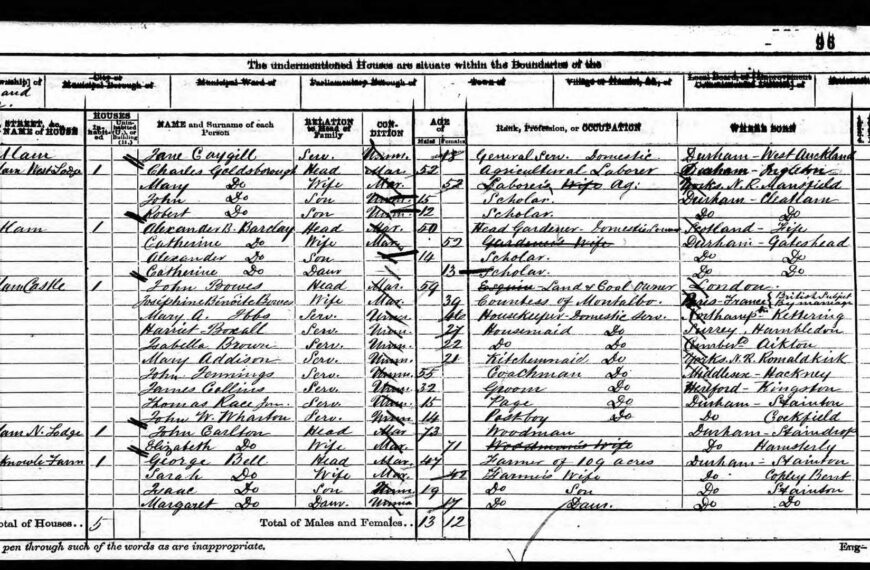 96
The undermentioned Houses are situate within the Boundaries of the
Township] of City or Municipal Borough of Municipal Ward of Parliamentary Borough of Town of Village or Hamlet, &c., of Local Board, or [Improvement Commissioners District] of
and
STREET, &c. NAME of HOUSE HOUSES Inhabited NAME and Surname of each Person RELATION to Head of Family CONDITION AGE of Males Females Rank, Profession, or OCCUPATION WHERE BORN
Jane Caygill Serv. Unm. 18 General Serv. Domestic Durham - West Auckland
West Lodge 1 Charles Goldsborough Head Mar. 52 Agricultural Laborer Durham - Ingleton
Mary Do Wife Mar. 52 Laborers Wife Ag: Yorks. N.R. Mansfield
John Do Son Unm. 15 Scholar. Durham - Cleatlam
Robert Do Son Unm 12 Scholar. Do Do
1 Alexander B. Barclay Head Mar. 50 Head Gardener - Domestic Scotland - Fife
Catherine Do Wife Mar. 52 Gardener's Wife Durham - Gateshead
Alexander Do Son 14 Scholar. Do Do
Catherine Do Daur 13 Scholar. Do Do
Castle 1 John Bowes Head Mar. 59 Esquire - Land & Coal Owner London.
Josephine Benoite Bowes Wife Mar. 39 Countess of Montalbo. Paris - France {British Subject by marriage
Mary A. Ibbs Serv. Unm. 46 Housekeeper - Domestic Serv. Northamp - Kettering
Harriet Boxall Serv. Unm. 27 Housemaid Do Surrey. Hambledon
Isabella Brown Serv. Unm. 22 Do Do Cumbd. Aikton
Mary Addison Serv. Unm. 21 Kitchenmaid Do Yorks. N.R. Romaldkirk
John Jennings Serv. Unm. 55 Coachman Do Middlesex - Hackney
James Collins Serv. Unm. 32 Groom Do Herford - Kingston
Thomas Race Jun. Serv. Unm. 15 Page Do Durham - Stainton
John W. Wharton Serv. Unm 14 Postboy Do Do Cockfield
N. Lodge 1 John Carlton Head Mar. 73 Woodman Durham - Staindrop
Elizabeth Do Wife Mar. 71 Woodman's Wife Do Hamsterly
knowle Farm 1 George Bell Head Mar. 47 Farmer of 109 acres Durham - Stainton
Sarah Do Wife Mar. 42 Farmer's Wife Do Copley Bent
Isaac Do Son Unm. 19 Do Son Do Stainton
Margaret Do Daur Unm 17 Do Daur. Do Do
Total of Houses.. 5 Total of Males and Females.. 13 12
pen through such of the words as are inappropriate. Eng-